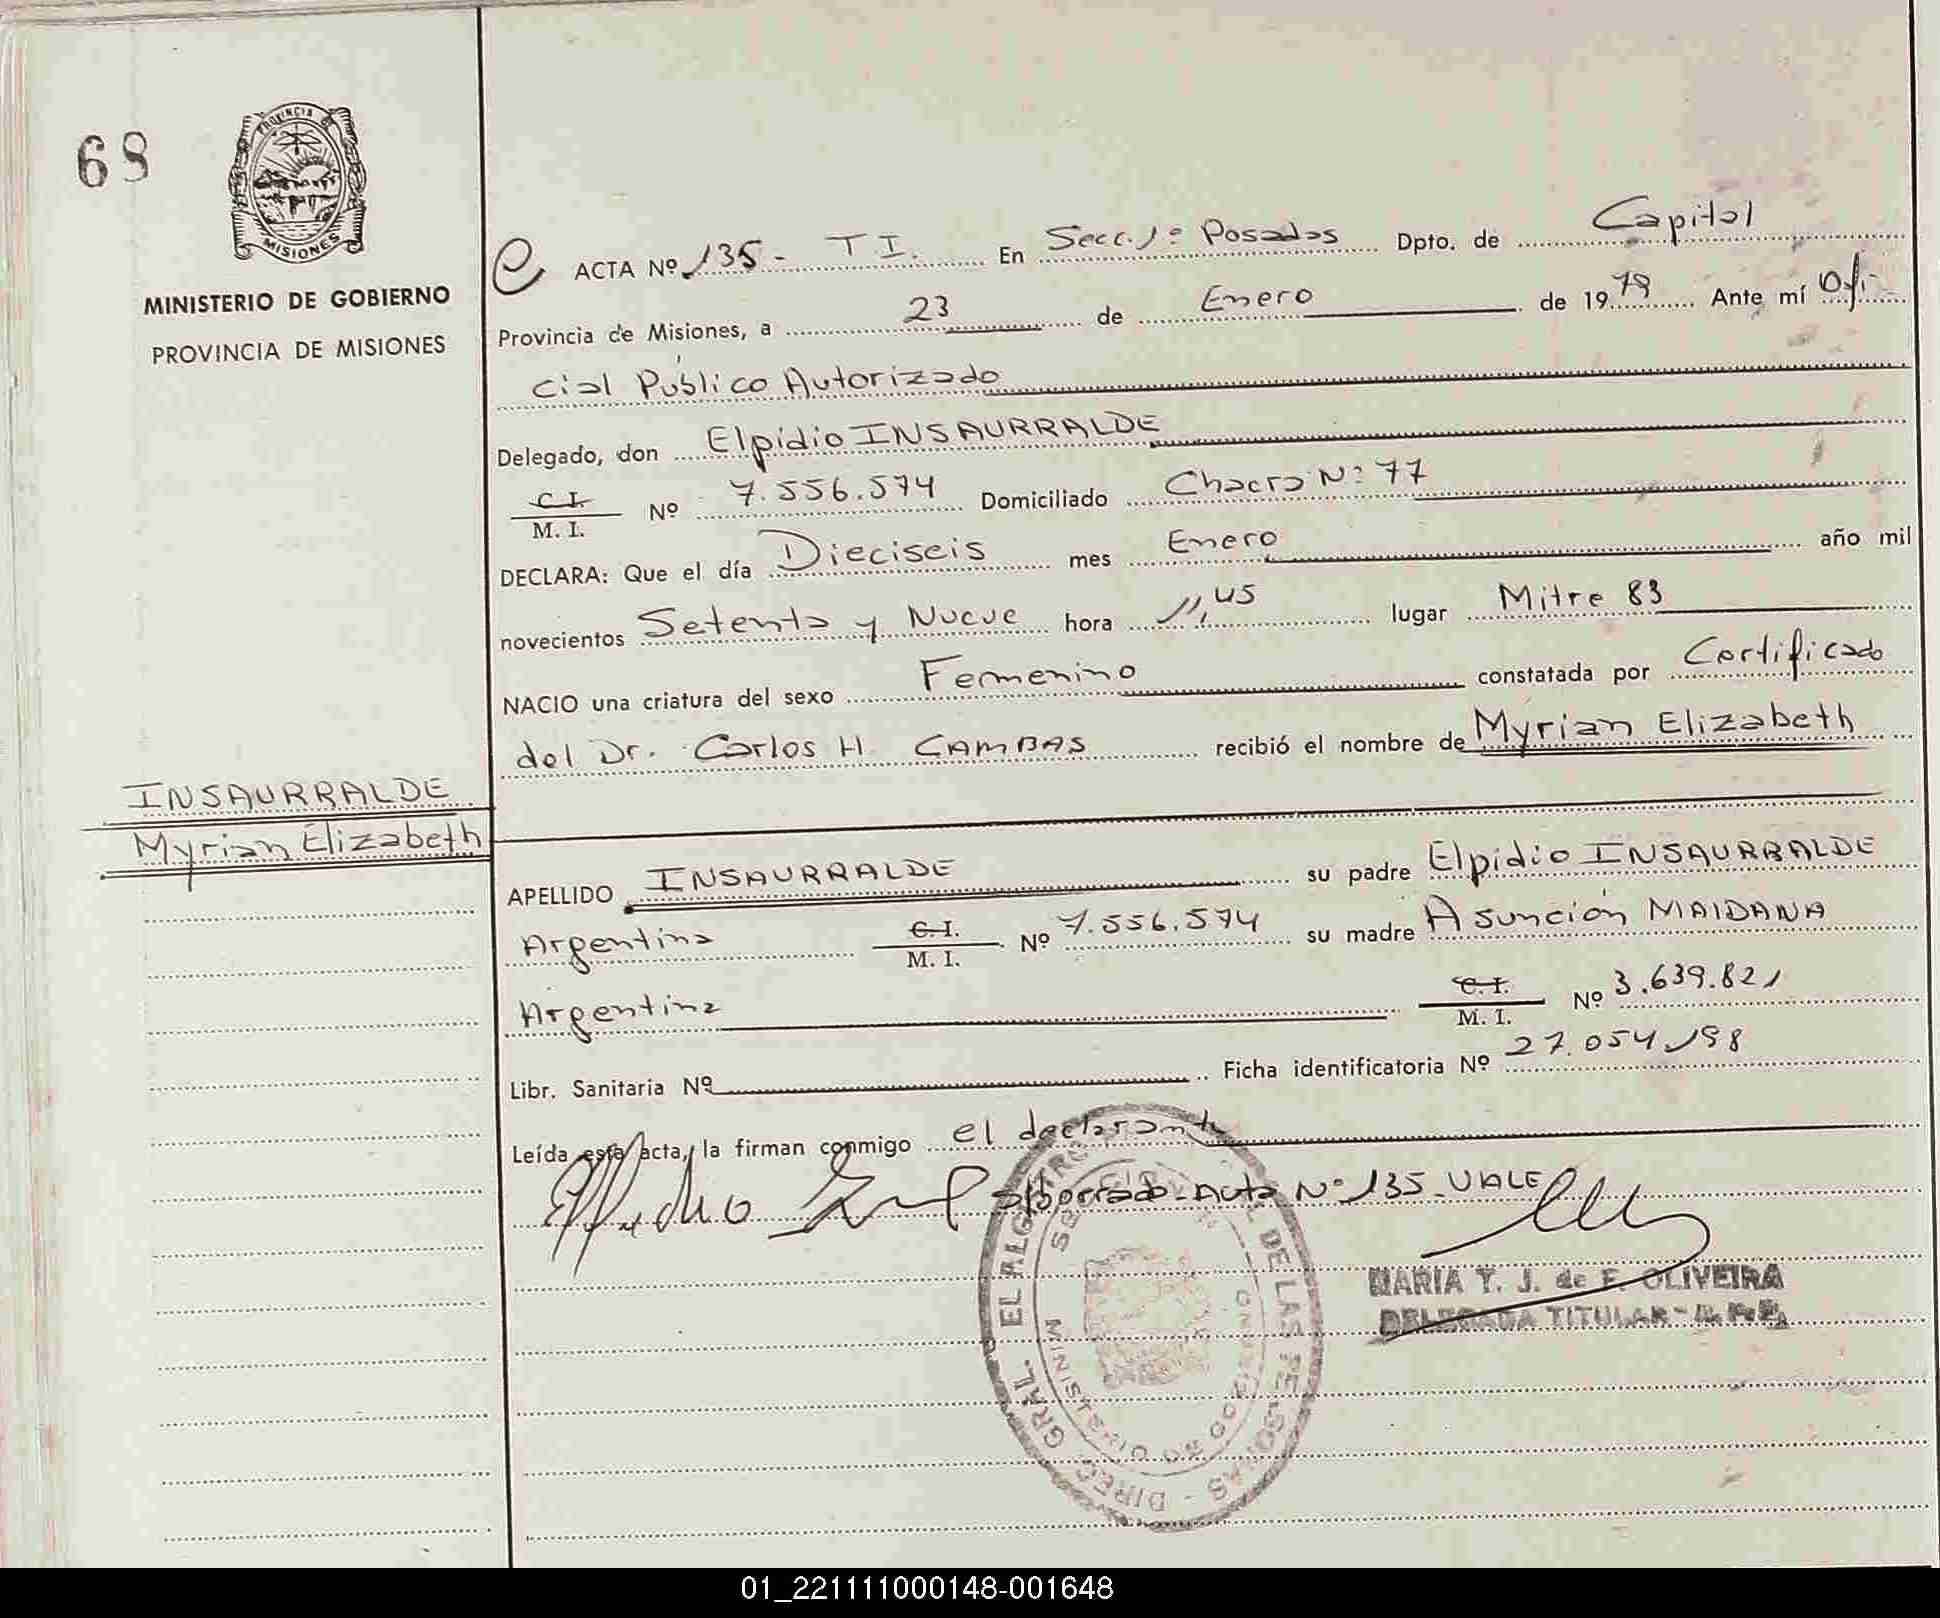 68
PROVINCIA DE
MISIONES
MINISTERIO DE GOBIERNO
PROVINCIA DE MISIONES
INSAURRALDE
Myrian Elizabeth
ACTA Nº 135- T I. En Secc. 1º Posadas Dpto. de Capital
Provincia de Misiones, a 23 de Enero de 1979 Ante mí Ofi-
cial Público Autorizado
Delegado, don Elpidio INSAURRALDE
C. I.
M. I. Nº 7.556.574 Domiciliado Chacra Nº 77
DECLARA: Que el día Dieciseis mes Enero año mil
novecientos Setenta y Nueve hora 11,45 lugar Mitre 83
NACIO una criatura del sexo Femenino constatada por Certificado
del Dr. Carlos H. CAMBAS recibió el nombre de Myrian Elizabeth
APELLIDO INSAURRALDE su padre Elpidio INSAURRALDE
Argentina C. I.
M. I. Nº 7.556.574 su madre Asunción MAIDANA
Argentina C. I.
M. I. Nº 3.639.821
Libr. Sanitaria Nº Ficha identificatoria Nº 27.054.198
Leída esta acta, la firman conmigo el declarante
s/borrado-Acta Nº 135-VALE
MARIA T. J. de F. OLIVEIRA
DELEGADA TITULAR
01_221111000148-001648